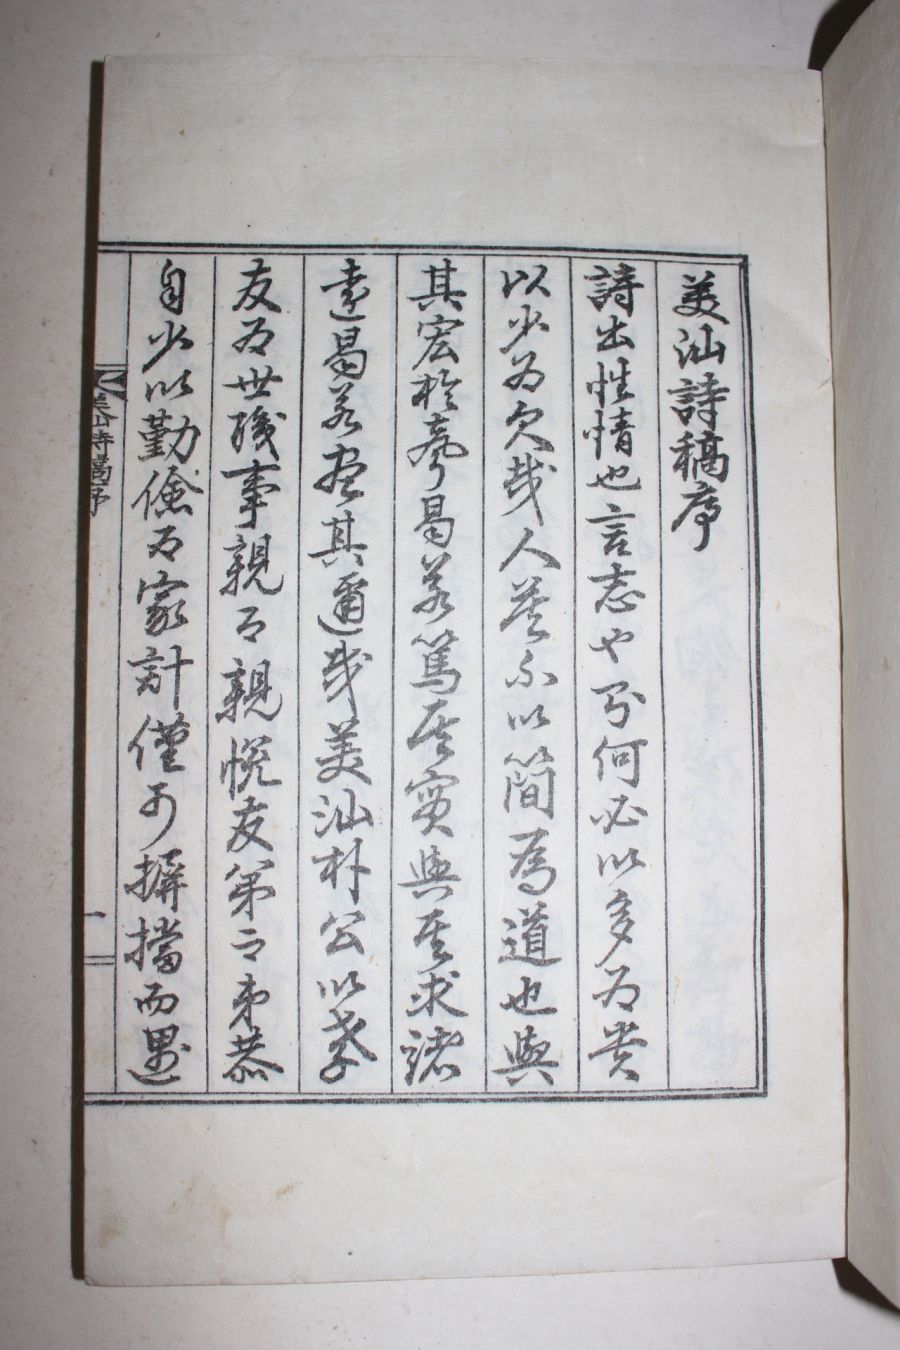 美汕詩稿序
詩出性情也言志也曷何必以多爲貴
以少爲欠哉人蓋不以簡爲道也與
其宏於夸曷若篤其實與其求諸
遠曷若盡其邇哉美汕朴公以孝
友爲世職事親而親悅友弟而弟恭
自少以勤儉爲家計僅可摒擋而過
美汕詩稿序
一